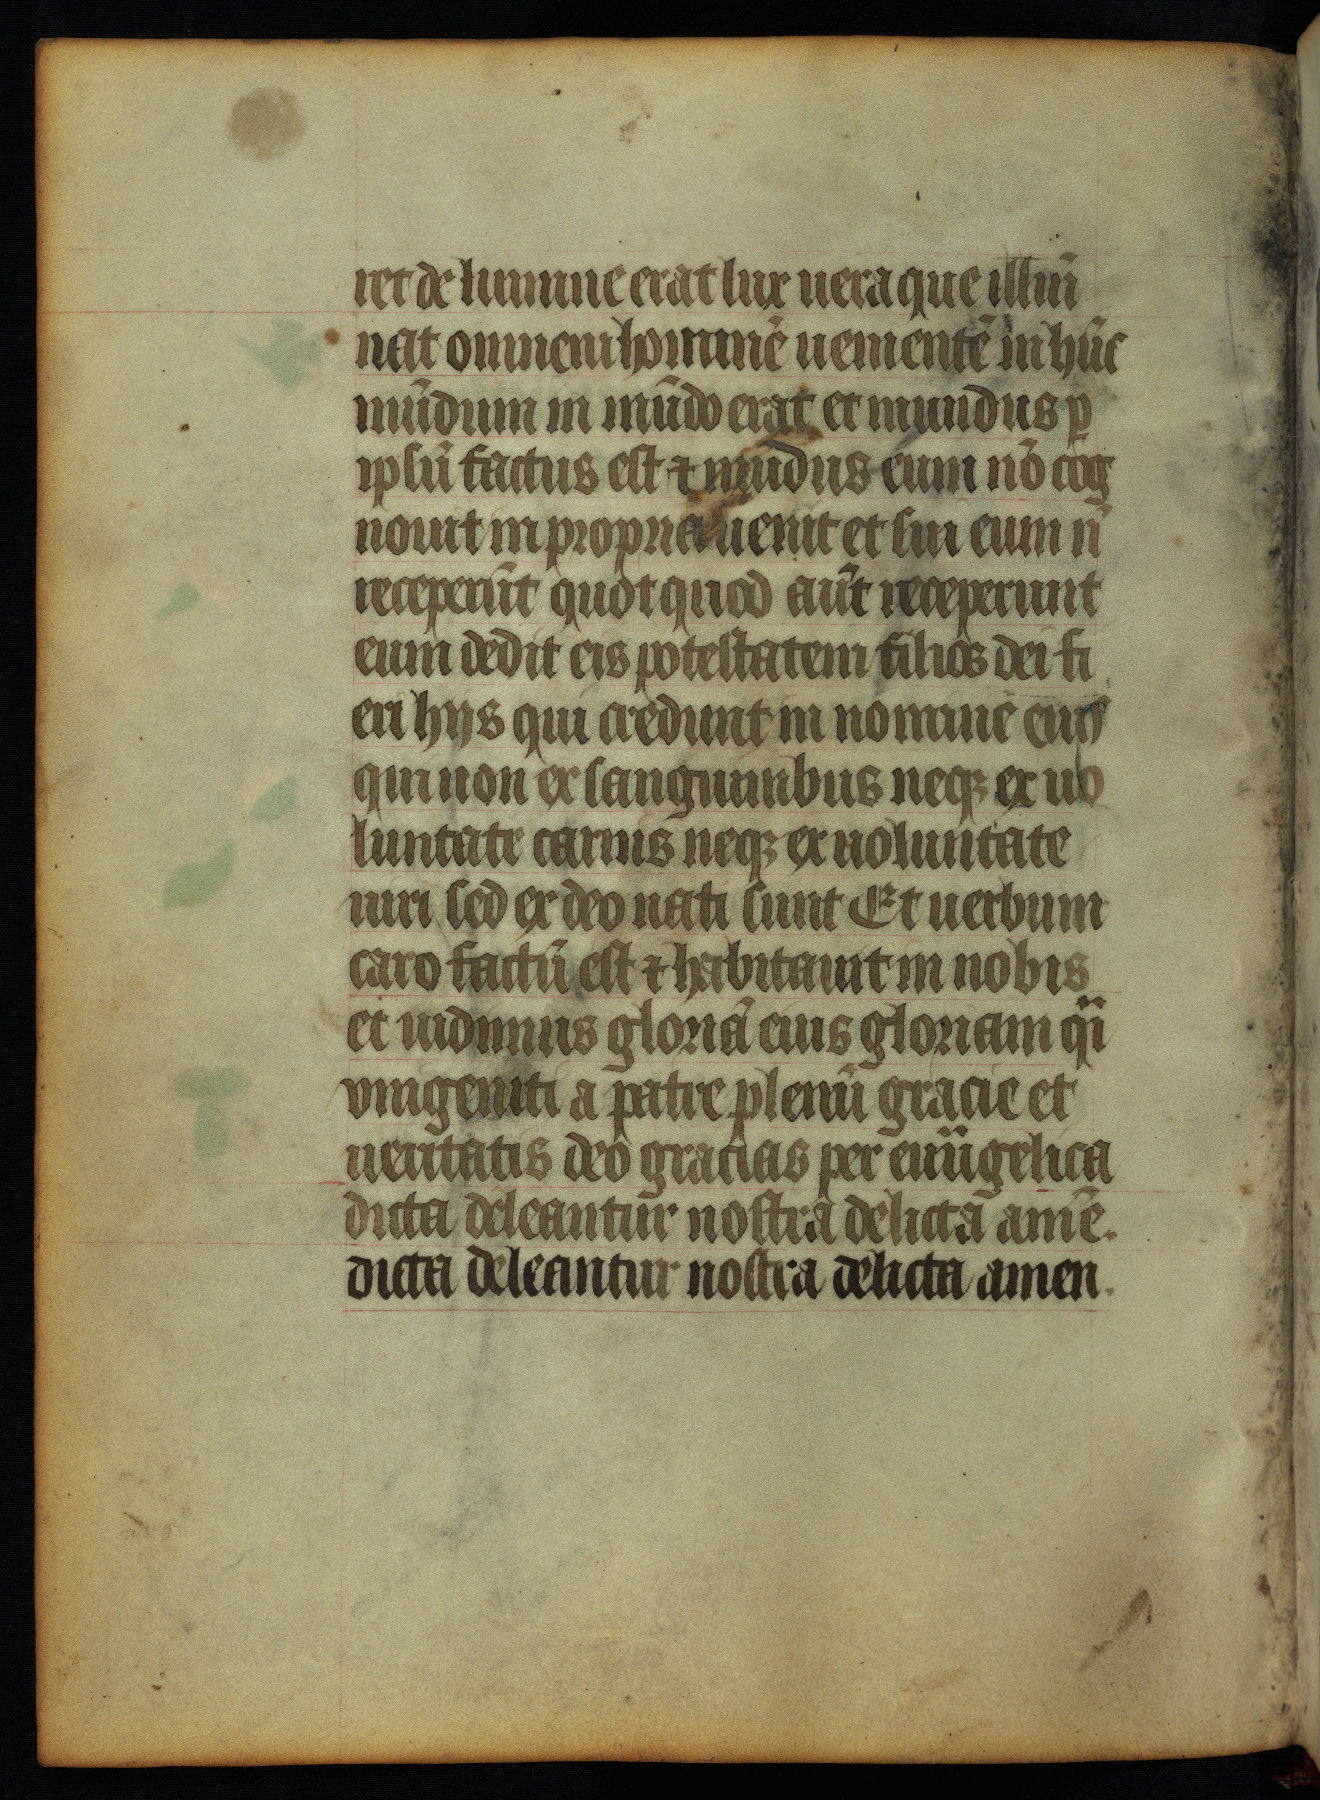 ret de lumine erat lux uera que illūi
nat omnem hominē uenientē in hūc
mūdum in mūdo erat et mundus ꝑ
ipsū factus est ⁊ mūdus eum nō cog
nouit in propria uenit et sui eum n̄
receperūt quotquod aūt receperunt
eum dedit eis potestatem filios dei fi
eri hijs qui credunt in nomine eius
qui non ex sanguinibus neqꝫ ex uo
luntate carnis neqꝫ ex uoluntate
uiri sed ex deo nati sunt Et uerbum
caro factū est ⁊ habitauit in nobis
et uidimus gloriā eius gloriam qi
vnigeniti a patre plenū gracie et
ueritatis deo gracias per euūgelica
dicta deleantur nostra delicta amē.
dicta deleantur nostra delicta amen.